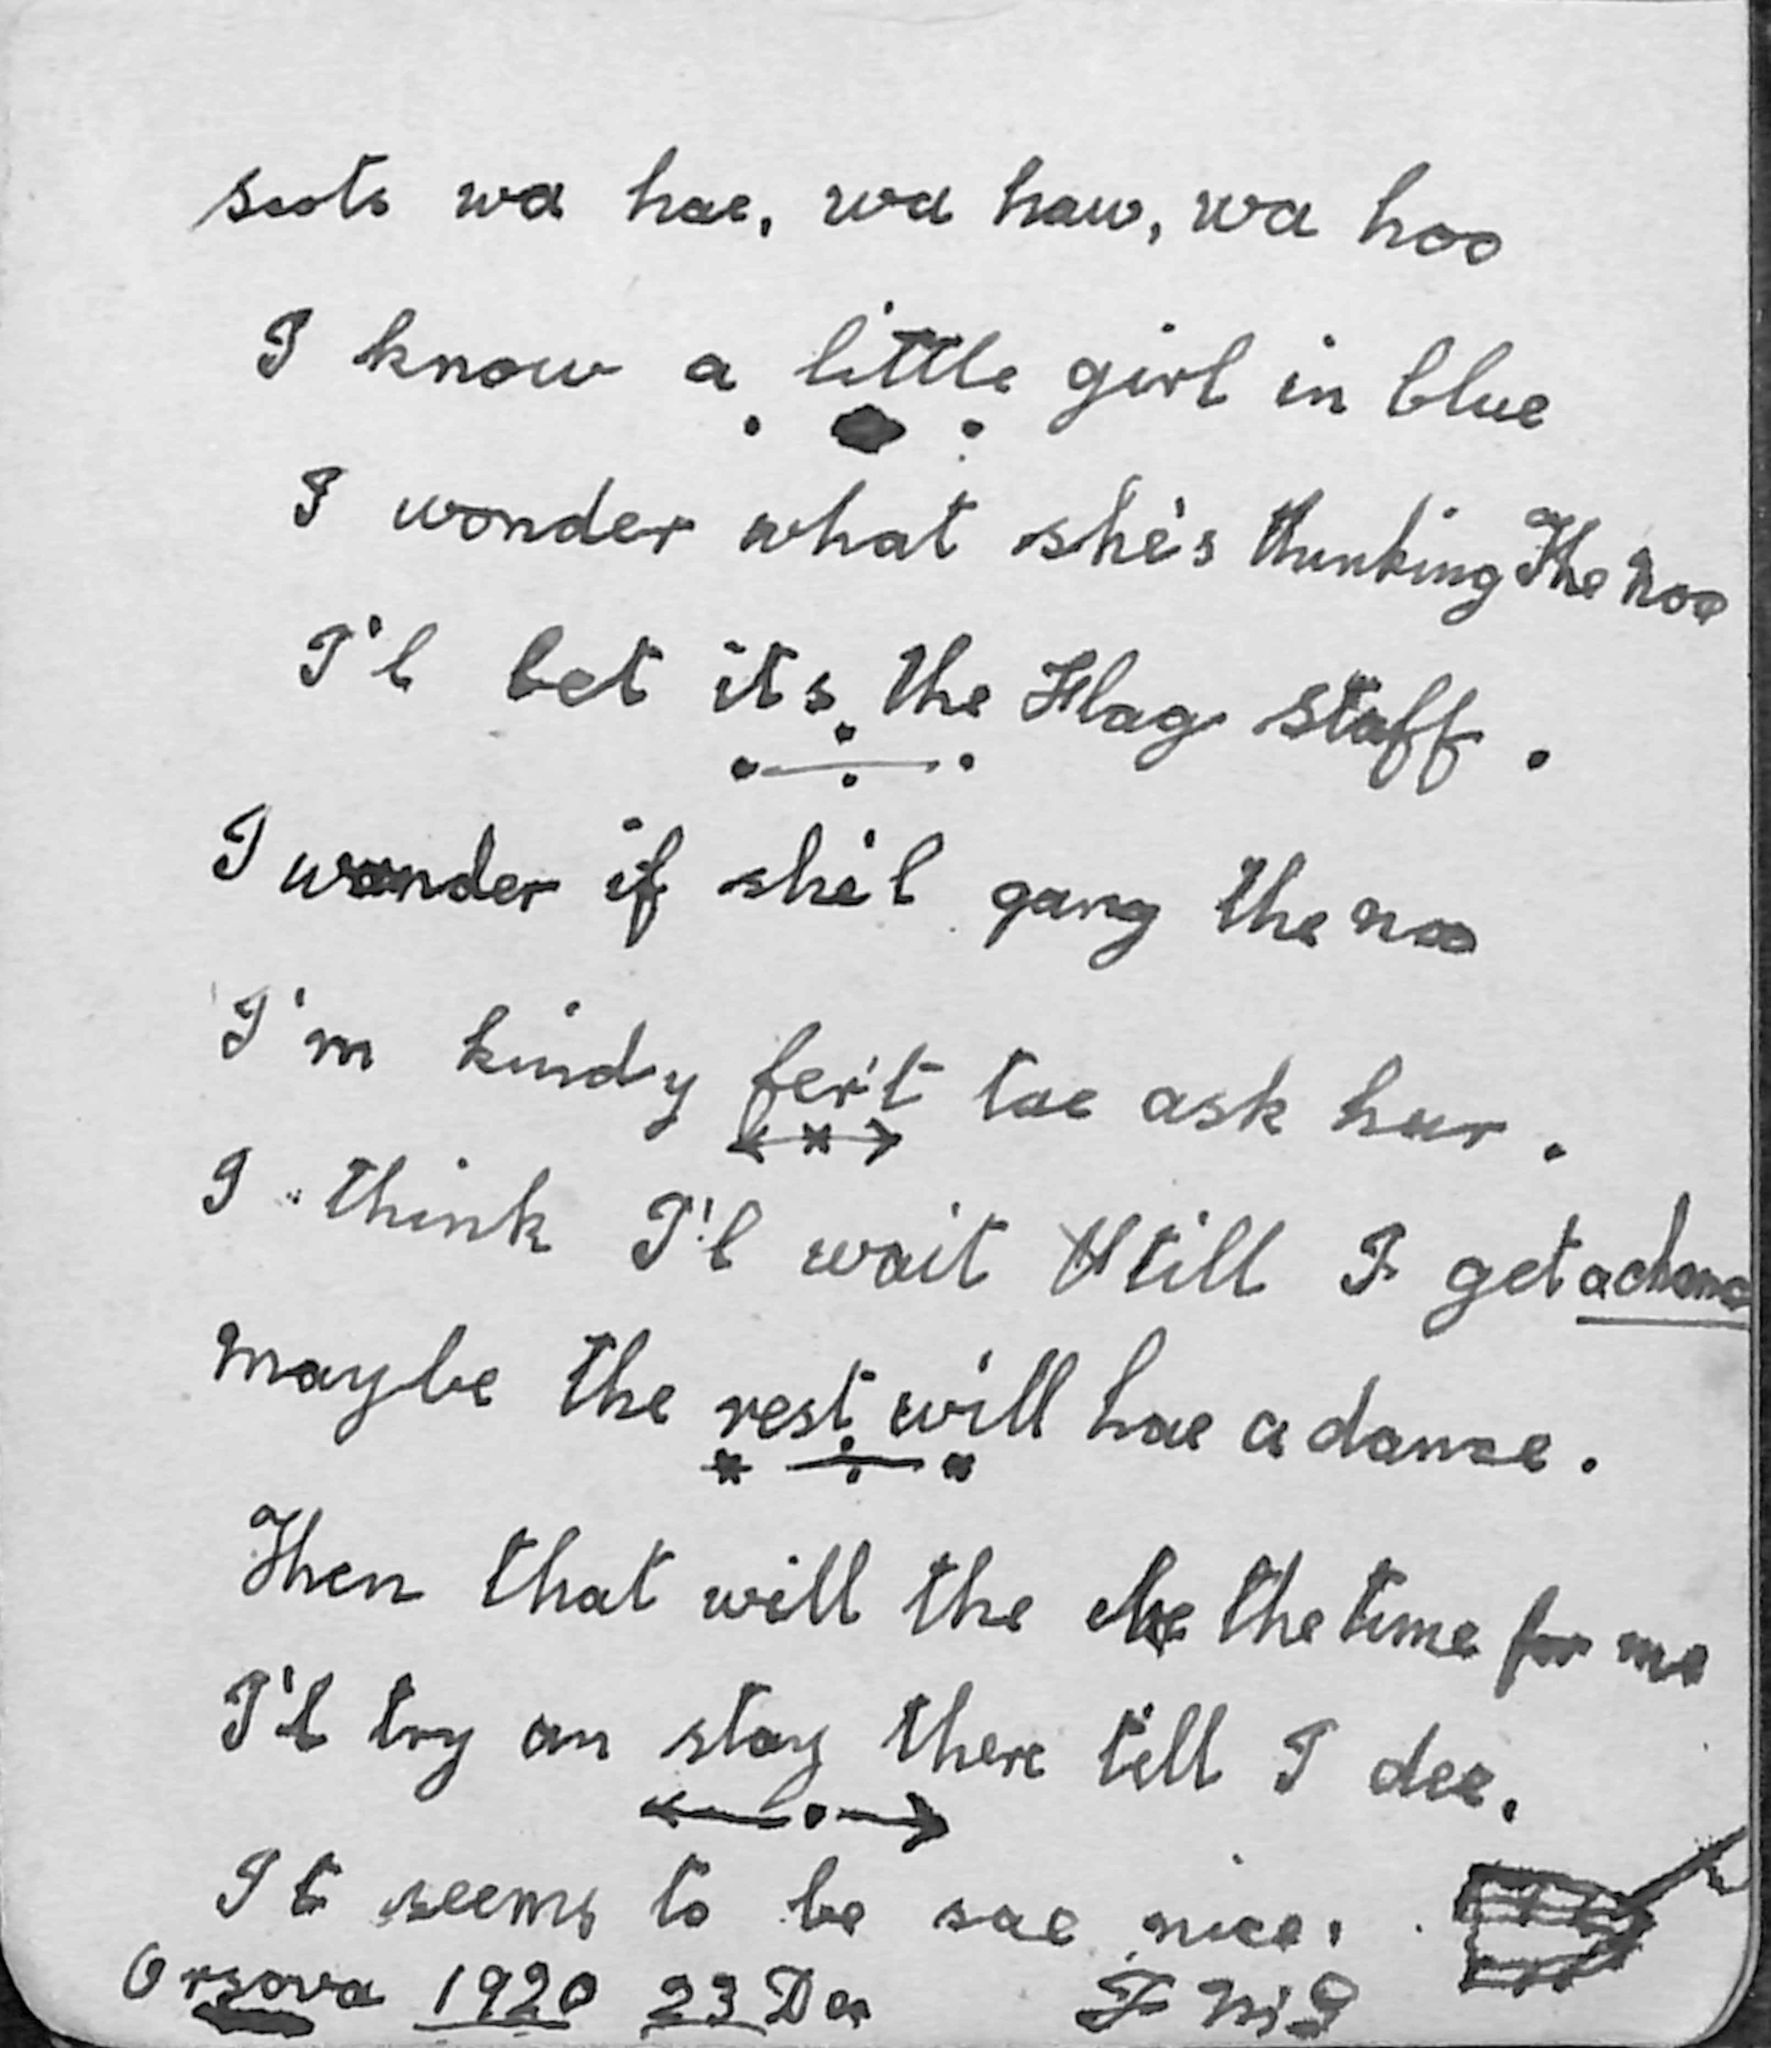 scots wa hae, wa haw, wa hoo
I know a little girl in blue
I wonder what she's thinking The noo
I'l bet its the Flag staff.
I wonder if she'l gang the noo
I'm kindy fer't tae ask hur.
I think I'l wait till I get a chance
maybe the rest will hae a dance.
Then that will the be the time for me
I'l try an stay there till I dee.
It seems to be sae nice.
Orsova 1920 23 Dec